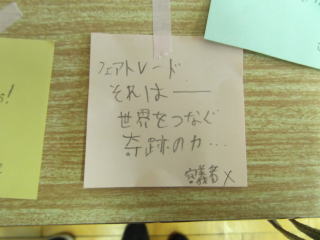 フェアトレード
それは――
世界をつなぐ
奇跡の力…
容義者X
s!